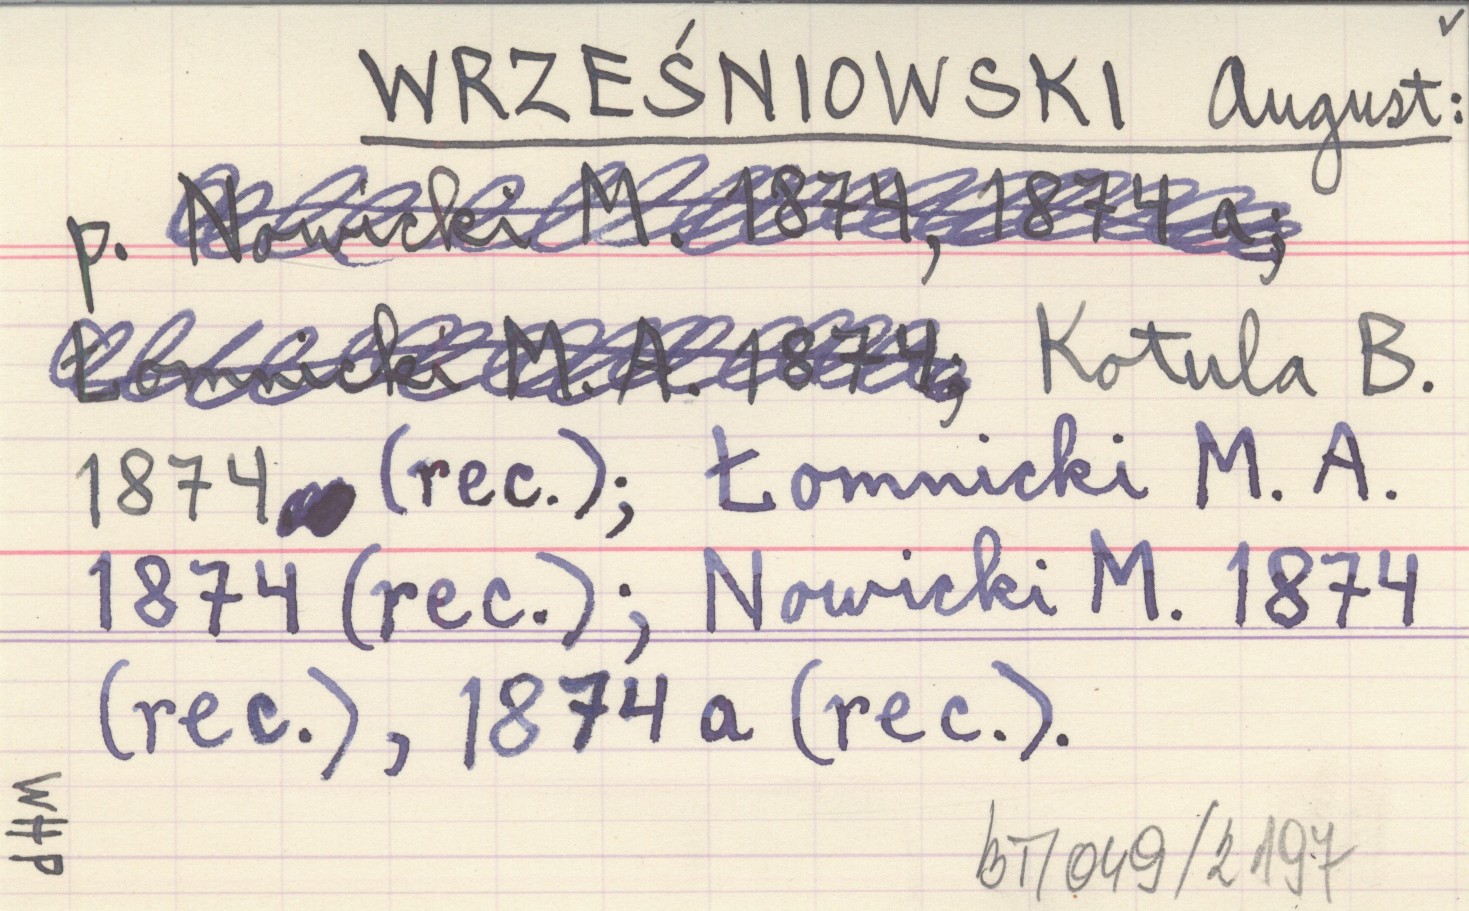 ✓
WRZEŚNIOWSKI August:
p. Nowicki M. 1874, 1874 a;
Łomnicki M. A. 1874; Kotula B.
1874 (rec.); Łomnicki M. A.
1874 (rec.); Nowicki M. 1874
(rec.), 1874 a (rec.).
WHP
BT/049/2197